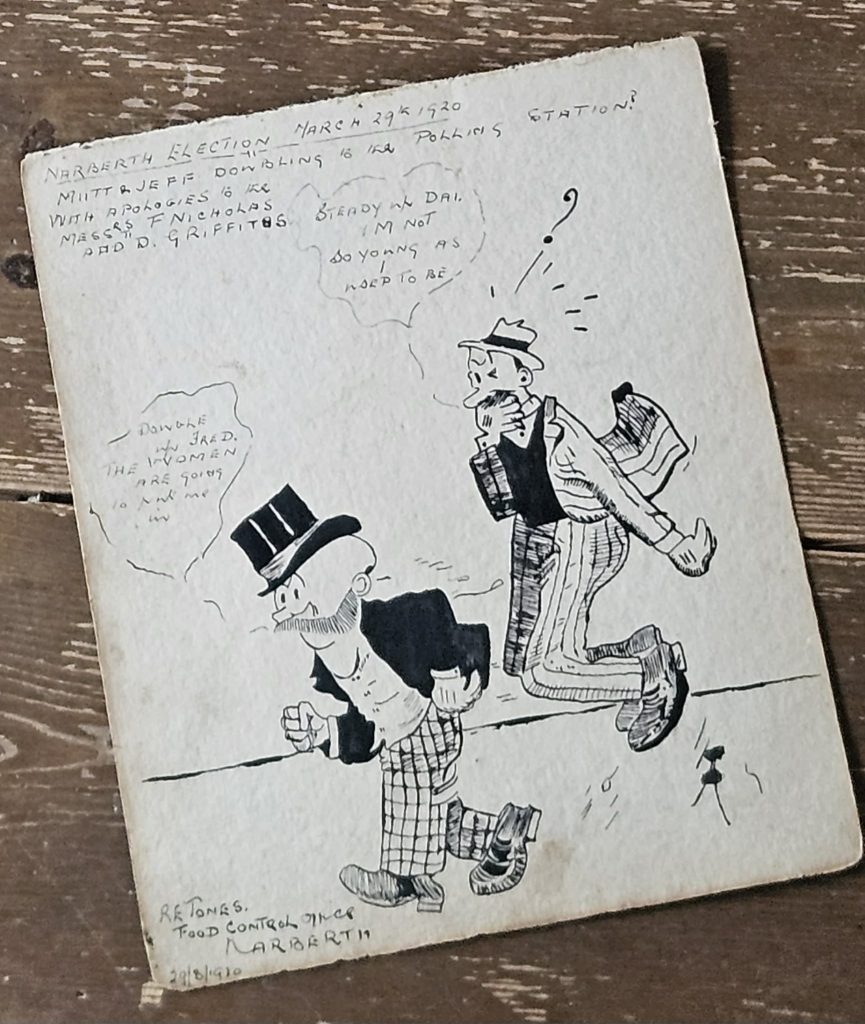 NARBERTH ELECTION MARCH 29th 1920
MUTT & JEFF DOWBLING to the POLLING STATION?
WITH APOLOGIES to the
MESSRS F NICHOLAS
AND D. GRIFFITHS.
STEADY DAI.
I'M NOT
SO YOUNG AS
I
USED TO BE
DOWBLE
FRED.
THE WOMEN
ARE GOING
to me
in
?
RE JONES.
FOOD CONTROL Office
NARBERTH
29/3/1920